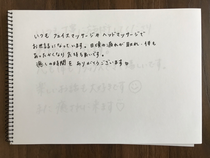 いつも フェイスマッサージや ヘッドマッサージで
お世話になっています。日頃の疲れが取れ、体も
あったかくなり 気持ち良いです。
癒しの時間を ありがとうございます